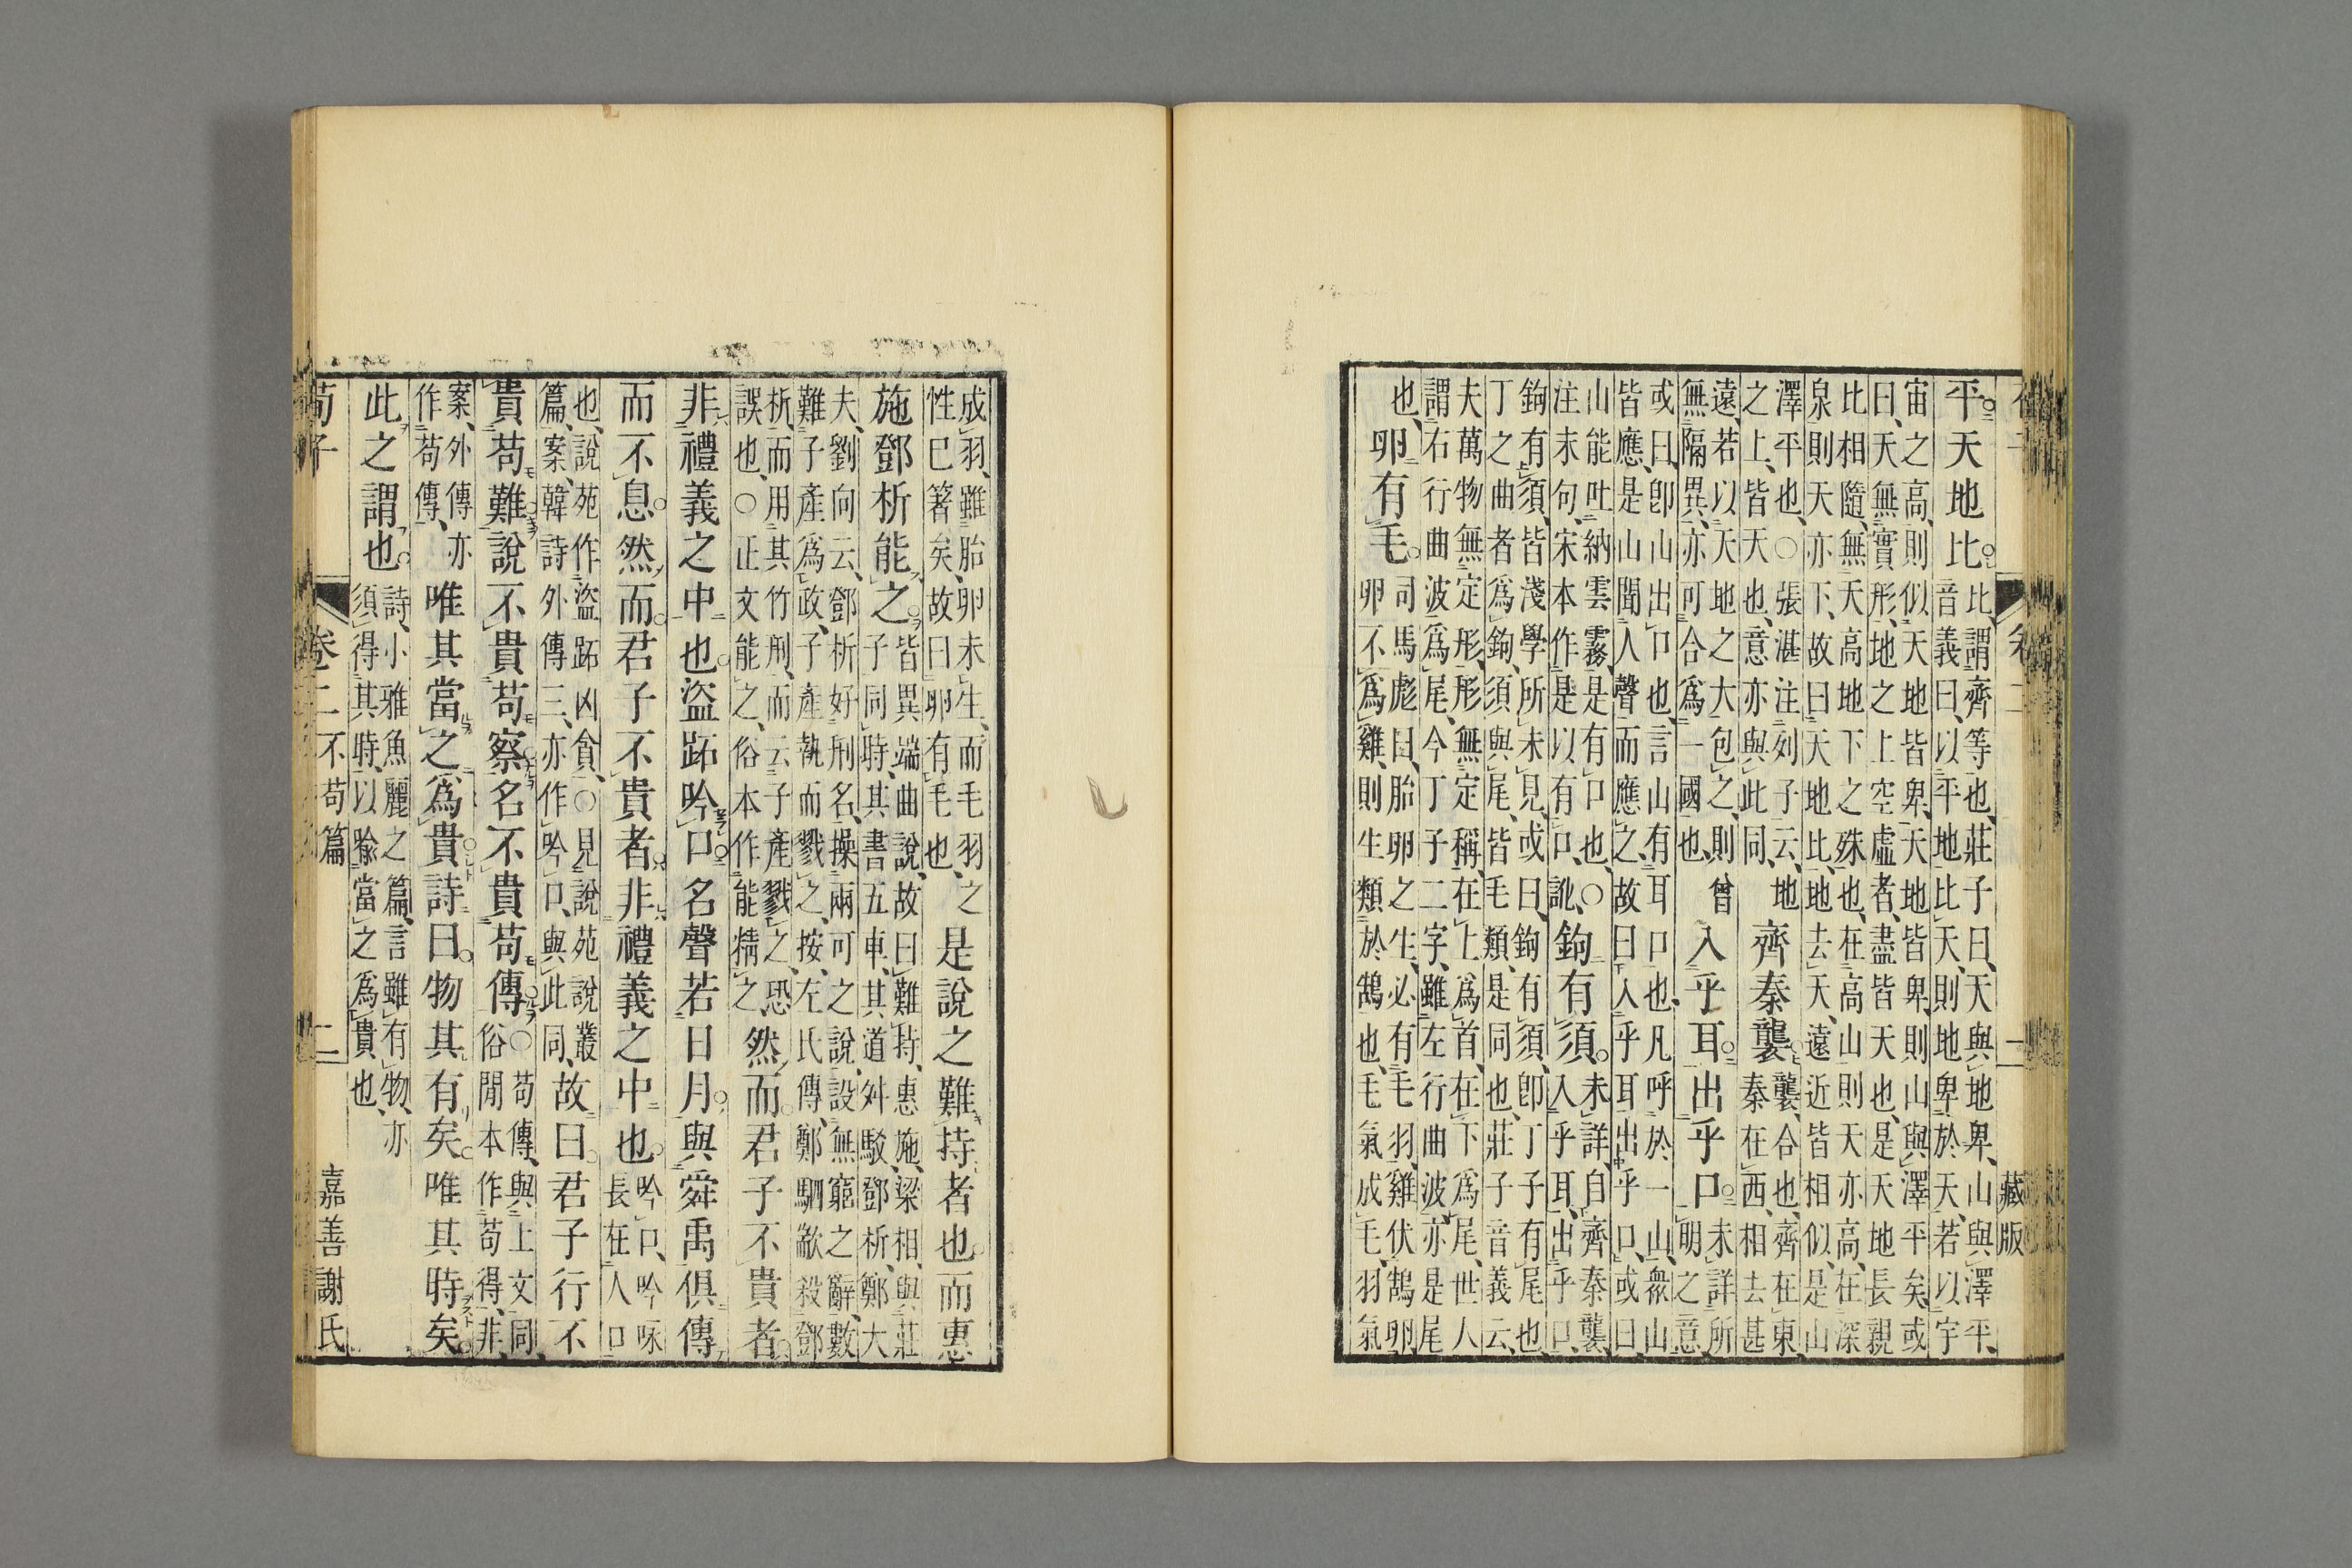 藏版
平天地比
比、謂齊等也、莊子曰、天與地卑、山與澤平、
音義曰、以平地比天、則地卑於天、若以宇
宙之高、則似天地皆卑、天地皆卑、則山與澤平矣、或
曰、天無實形、地之上空虛者、盡皆天也、是天地長親
比相隨、無天高地下之殊也、在高山則天亦高、在深
泉則天亦下、故曰天地比、地去天、遠近皆相似、是山
澤平也、○張湛注列子云、地
之上、皆天也、意亦與此同、
齊秦襲
襲、合也、齊在東、
秦在西、相去甚
遠、若以天地之大包之、則曾
無隔異、亦可合爲一國也、
入乎耳出乎口
未詳所
明之意、
或曰、卽山出口也、言山有耳口也、凡呼於一山、衆山
皆應、是山聞人聲而應之、故曰入乎耳出乎口、或曰、
山能吐納雲霧、是有口也、○
注末句、宋本作是以有口、訛、
鉤有須
未詳、自齊秦襲、
入乎耳、出乎口、
鉤有須、皆淺學所未見、或曰、鉤有須、卽丁子有尾也、
丁之曲者爲鉤、須與尾、皆毛類、是同也、莊子音義云、
夫萬物無定形、形無定稱、在上爲首、在下爲尾、世人
謂右行曲波爲尾、今丁子二字、雖左行曲波、亦是尾
也、
卵有毛
司馬彪曰、胎卵之生、必有毛羽、雞伏鵠卵、
卵不爲雞、則生類於鵠也、毛氣成毛、羽氣
成羽、雖胎卵未生、而毛羽之
性已著矣、故曰卵有毛也、
是說之難持者也而惠
施鄧析能之
皆異端曲說、故曰難持、惠施、梁相、與莊
子同時、其書五車、其道舛駁、鄧析、鄭大
夫、劉向云、鄧析好刑名、操兩可之說、設無窮之辭、數
難子產爲政、子產執而戮之、按、左氏傳、鄭駟歂殺鄧
析、而用其竹刑、而云子產戮之、恐
誤也、○正文能之、俗本作能精之、
然而君子不貴者
非禮義之中也盜跖吟口名聲若日月與舜禹俱傳
而不息然而君子不貴者非禮義之中也
吟口、吟咏
長在人口
也、說苑作盜跖凶貪、○見說苑說叢
篇、案、韓詩外傳三、亦作吟口、與此同、
故曰君子行不
貴苟難說不貴苟察名不貴苟傳
○苟傳、與上文同、
俗閒本作苟得、非、
案、外傳亦
作苟傳、
唯其當之爲貴詩曰物其有矣唯其時矣
此之謂也
詩、小雅魚麗之篇、言雖有物、亦
須得其時、以喩當之爲貴也、
荀子
卷二 不苟篇
二
嘉善謝氏